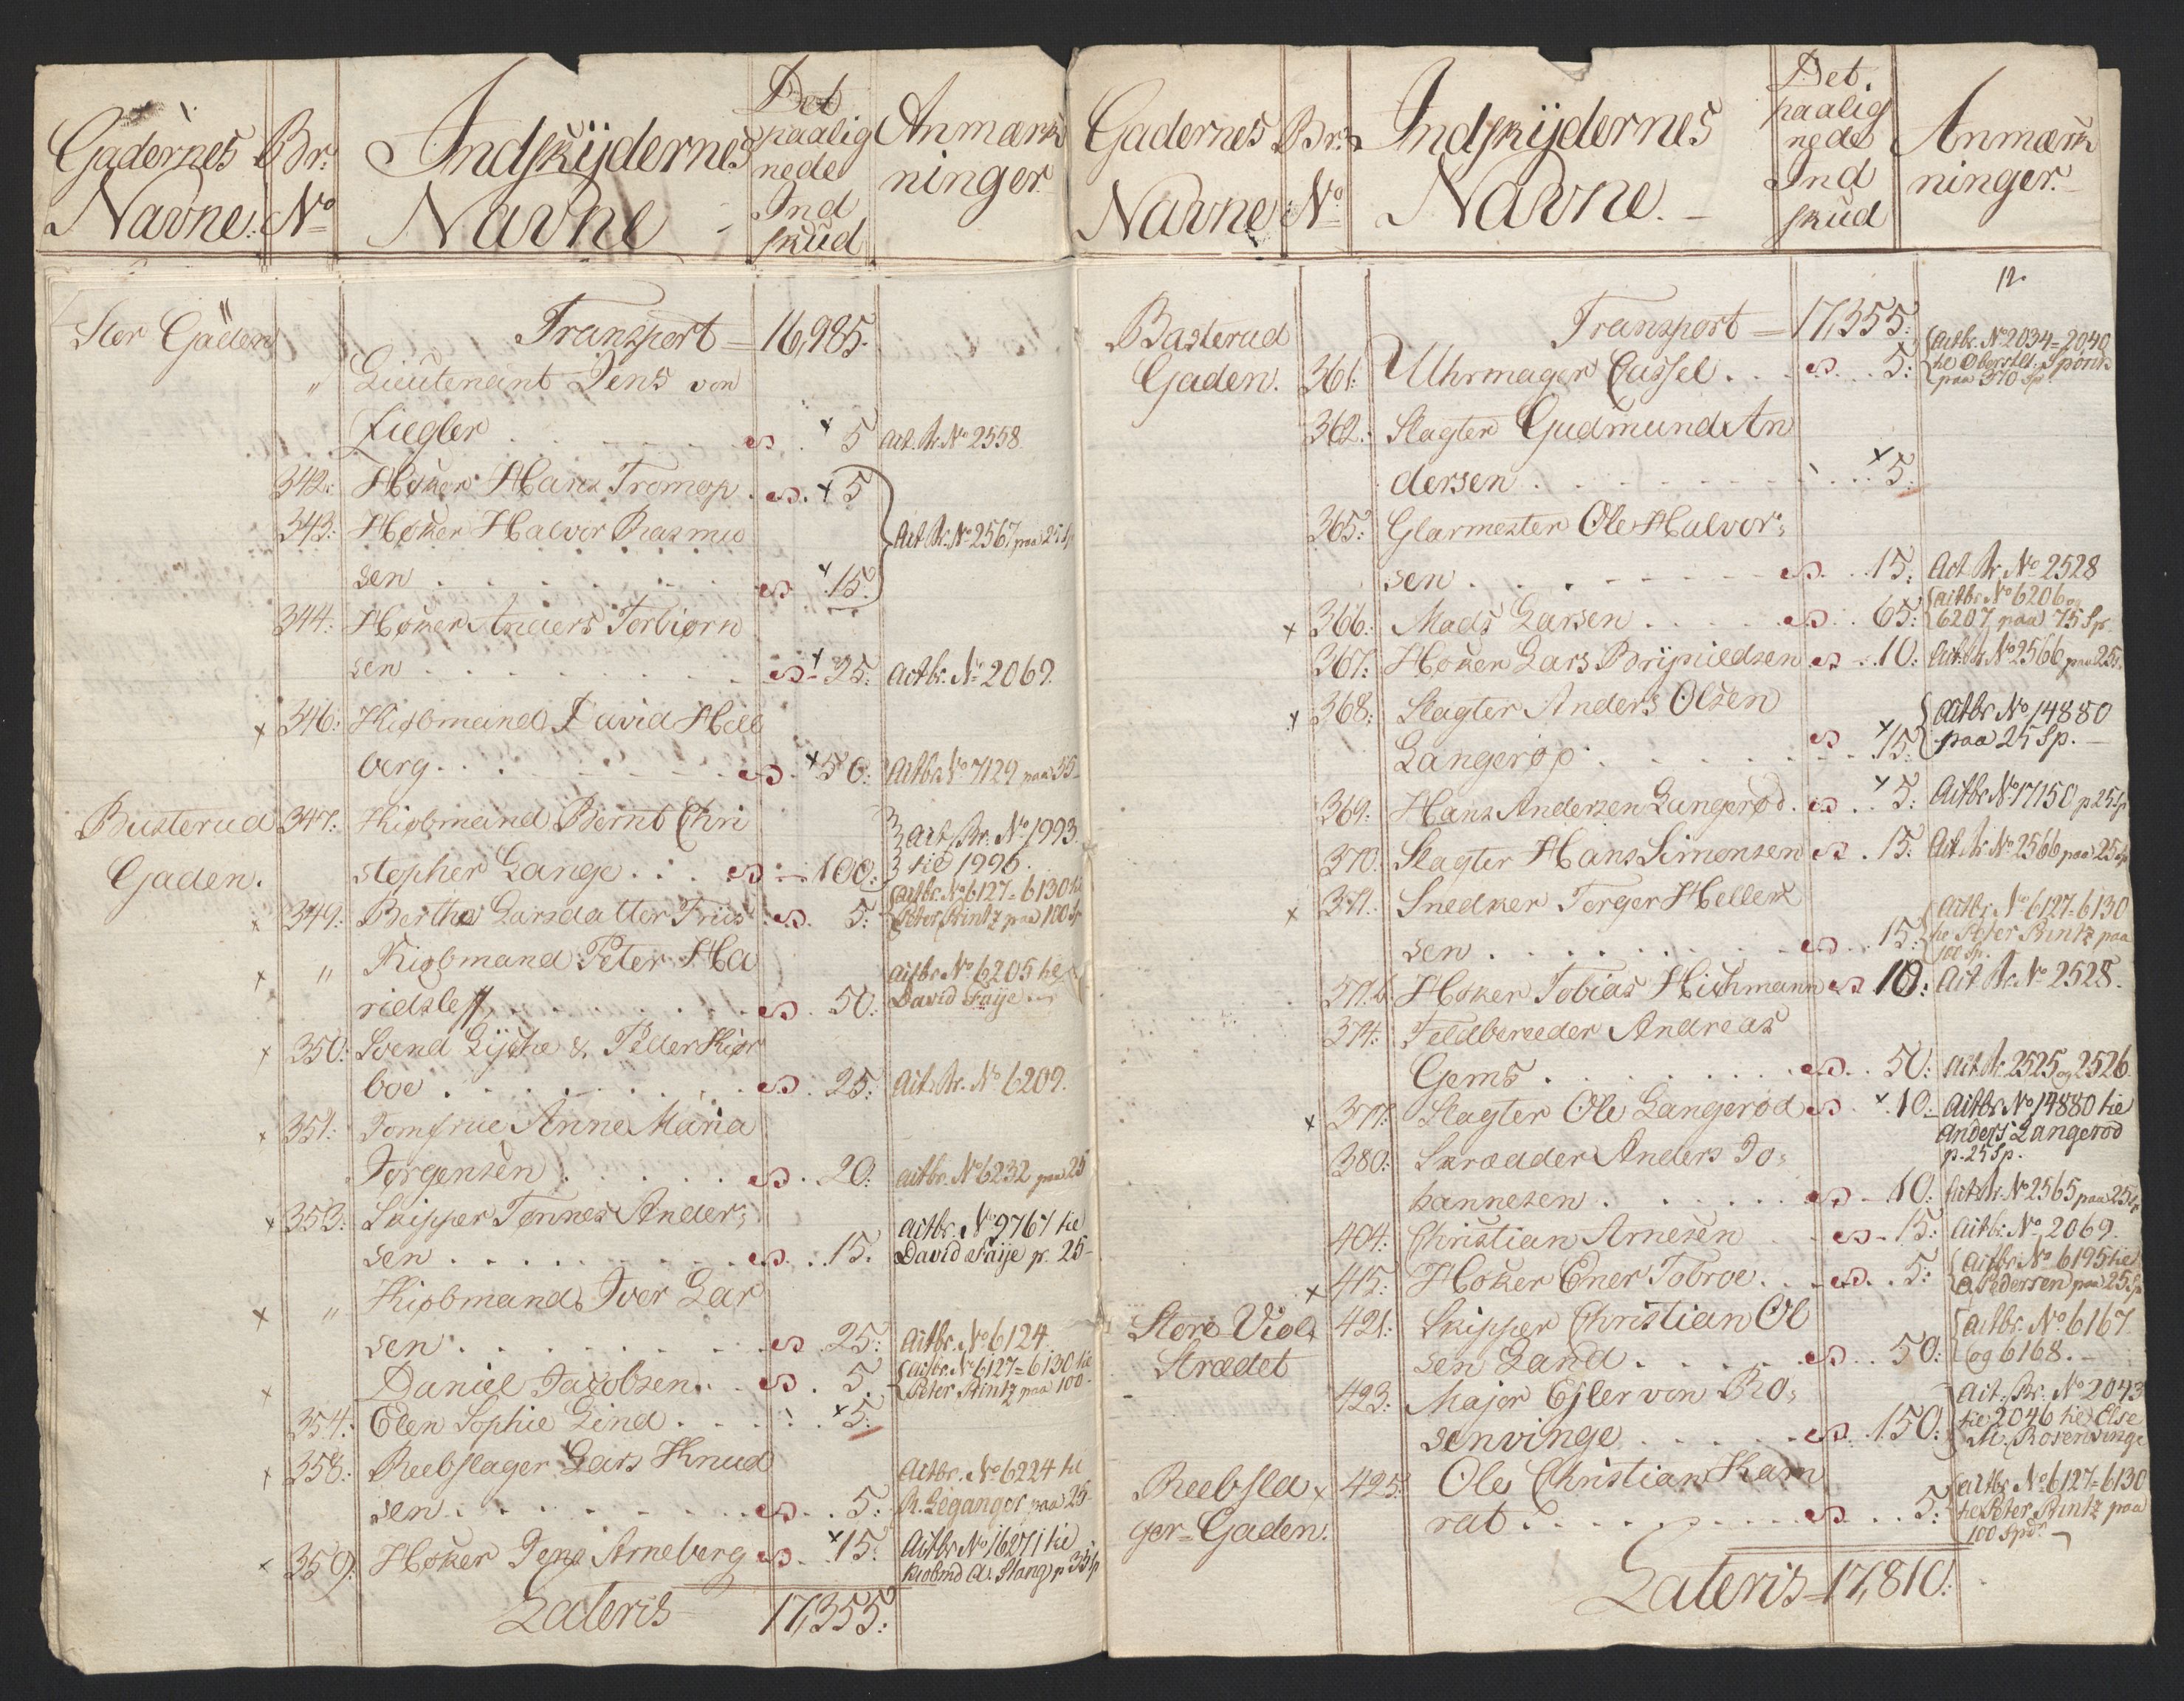 Gadernes Navne.
Br: No
Indskÿdernes Navne
Det paalig nede Ind skud
Anmærk ninger
Stor Gaden
Transport = 16,985.
" Lieutenant Jens von
Ziegler . . . s. x 5 act. Br. No 2558.
342: Høker Hans Tromop . s. x 5
343: Høker Halvor Rasmus
sen . . . s x 15. Act Br. No 2567 paa 25 Sp
344: Høker Anders Torbiørn
sen . . . s x 25: actbr. No 2069.
x 346: Kiøbmand David Hell
berg . . . s. x 50: Actbr No 7129 paa 55
Busterud Gaden.
347: Kiøbmand Bernt Chri
stopher Lange . . . s. 100: Act. Br. No 1993 til 1996.
x 349: Berthe Larsdatter Friis . s. 5: actbr. No 6127=6130 til Peter Printz paa 100 Sp
x " Kiøbmand Peter Ha
ridsleff . . . s. 50: actbr No 6205 til David Faÿe
x 350: Svend Lÿche & Peder Kiør
boe . . . s. 25: Act. Br. No 6209.
x 351: Jomfrue Anne Maria
Jørgensen . . . s. 20: actbr. No 6232 paa 25
x 353: Skipper Tønnes Ander,
sen . . . s. 15. actbr. No 9767 til David Faÿe p. 25-
x " Kiøbmand Iver Lar
sen . . . s. 25: Actbr. No 6124.
x Daniel Jacobsen . s. 5. actbr. No 6127=6130 til Peter Printz paa 100-
354: Elen Sophie Lind . . . x 5:
x 358: Reebslager Lars Knud
sen . . . s. 5: Actbr. No 6224 til R. Leganger paa 25
x 359: Høker Jens Arneberg s. x 15: Actbr No 16271 til kiøbmd A. Stang p 35 Sp
Lateris 17,355:
Gadernes Navne
Br: No
Indskÿdernes Navne. -
Det paalig nede Ind skud
Anmærk ninger. -
12.
Basterud Gaden.
Transport = 17,355:
361: Uhrmager Cassel . . . s. 5: actbr. No 2034=2040 til Oberstlt. Sponk paa 370 Sp
362: Slagter Gudmund An
dersen . . . x 5.
365: Glarmester Ole Halvor,
sen . . . s. 15: Act Br No 2528
x 366: Mads Larsen . . . s. 65: actbr No 6206 og 6207 paa 75 Sp.
367: Høker Lars Brÿnildsen s. 10: Act. Br No 2566 paa 25 Sp
x 368: Slagter Anders Olsen
Langerøp . . . s x 15 actbr No 14880 paa 25 Sp. -
369: Hans Andersen Langerød . s. x 5: Actbr No 17150 p 25 Sp
370. Slagter Hans Simensen s. 15: Act Br No 2566 paa 25 Sp
x 371. Snedker Torger Hellek
sen . . . s. 15: Actbr. No 6127=6130 til Peter Printz paa 100 Sp.
371.b Høker Tobias Hichmann s 10: Act Br. No 2528.
374: Feldbereeder Andreas
Gems . . . s. 50: act Br. 2525 og 2526.
x 377: Slagter Ole Langerød s. x 10: Actbr No 14880 til Anders Langerød p. 25 Sp.
380: Skrædder Anders Jo,
hannesen . . . s. 10: Act. Br. No 2565 paa 25 Sp
404: Christian Arnesen s. 15: Actbr. No 2069.
x 415: Høker Ener Tobroe . . s. 5: Actbr. No 6195 til O. Pedersen paa 25 Sp
Store Viol, Strædet
421: Skipper Christian Ol
sen Land . . . s. 50: actbr. No 6167 og 6168. -
423: Major Ejler von Ro,
senvinge . . . s. 150: Act. Br. No 2043 til 2046 til Else M. Rosenvinge
Reebsla ger=Gaden.
x 425: Ole Christian Kam
rat . . . s. 5: actbr. No 6127=6130 til Peter Printz paa 100 Spd.
Lateris = 17,810: